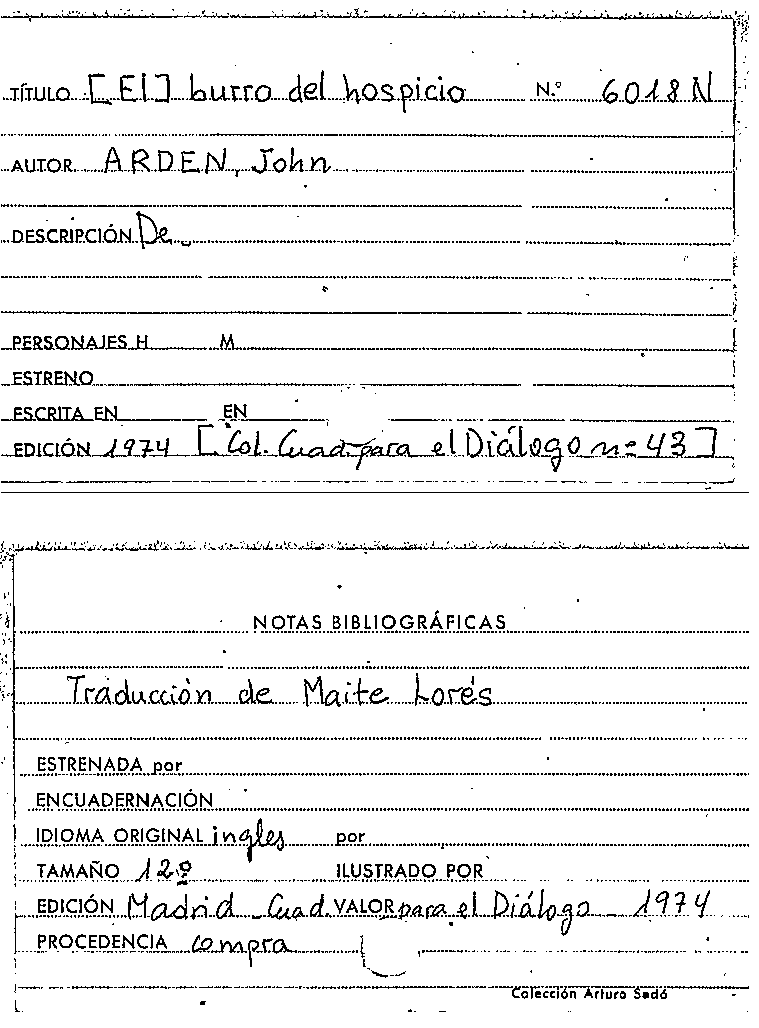 TÍTULO [El] burro del hospicio N.º 6018 N
AUTOR ARDEN, John
DESCRIPCIÓN De
PERSONAJES H M
ESTRENO
ESCRITA EN EN
EDICIÓN 1974 [Col. Cuad. para el Diálogo nº 43]
NOTAS BIBLIOGRÁFICAS
Traducción de Maite Lorés
ESTRENADA por
ENCUADERNACIÓN
IDIOMA ORIGINAL ingles por
TAMAÑO 12º ILUSTRADO POR
EDICIÓN Madrid - Cuad. VALOR para el Diálogo - 1974
PROCEDENCIA compra
Colección Arturo Sedó